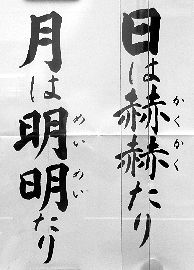 日は赫赫たり
かくかく
月は明明たり
めいめい